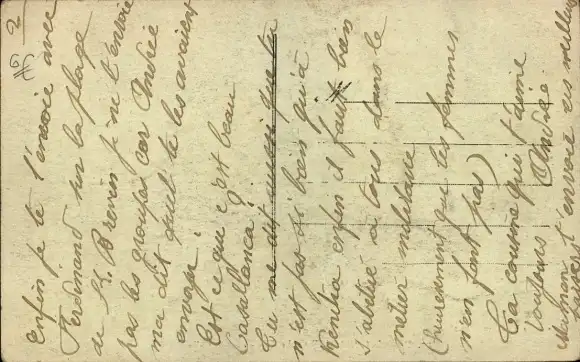 2
enfin je te l'envoie avec
Ferdinand sur la plage
de St. Brevin je ne t'envoie
pas les groupes car Andrée
m'a dit qu'elle te les avaient
envoyé
Est ce que c'est beau
Casablanca?
Tu me dit aussi que tu
n'est pas si bien qu'à
Kenitra enfin il faut bien
s'abitué a tous dans le
métier militaire
(heureusement que les femmes
n'en font pas)
Ta cousine qui t'aime
toujours Andrée
t'envoie ses meilleurs